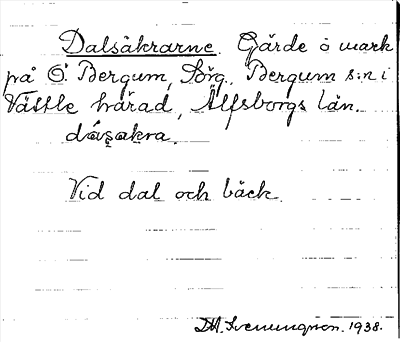 Dalsåkrarne. Gärde o mark
på Ö. Bergum, Sörg., Bergum s:n i
Vättle härad, Älfsborgs län.
dåsakra.
Vid dal och bäck.
D.A. Sveningson. 1938.